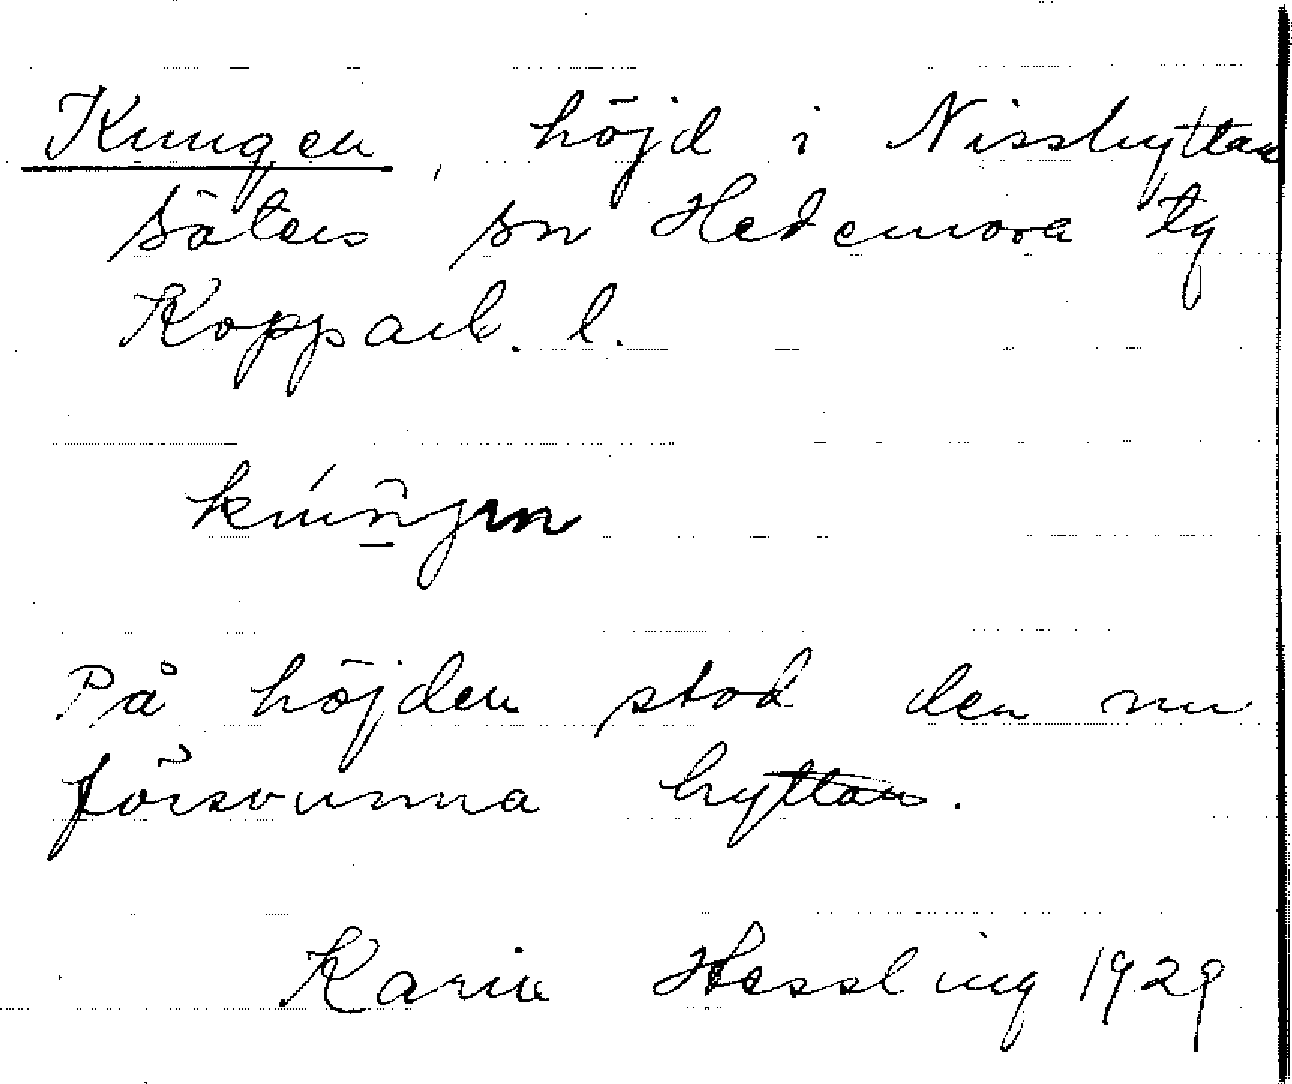 Kungen, höjd i Nisshyttan
Säters sn Hedemora tg
Kopparb. l.
På höjden stod den nu
försvunna hyttan.
Karin Hessling 1929